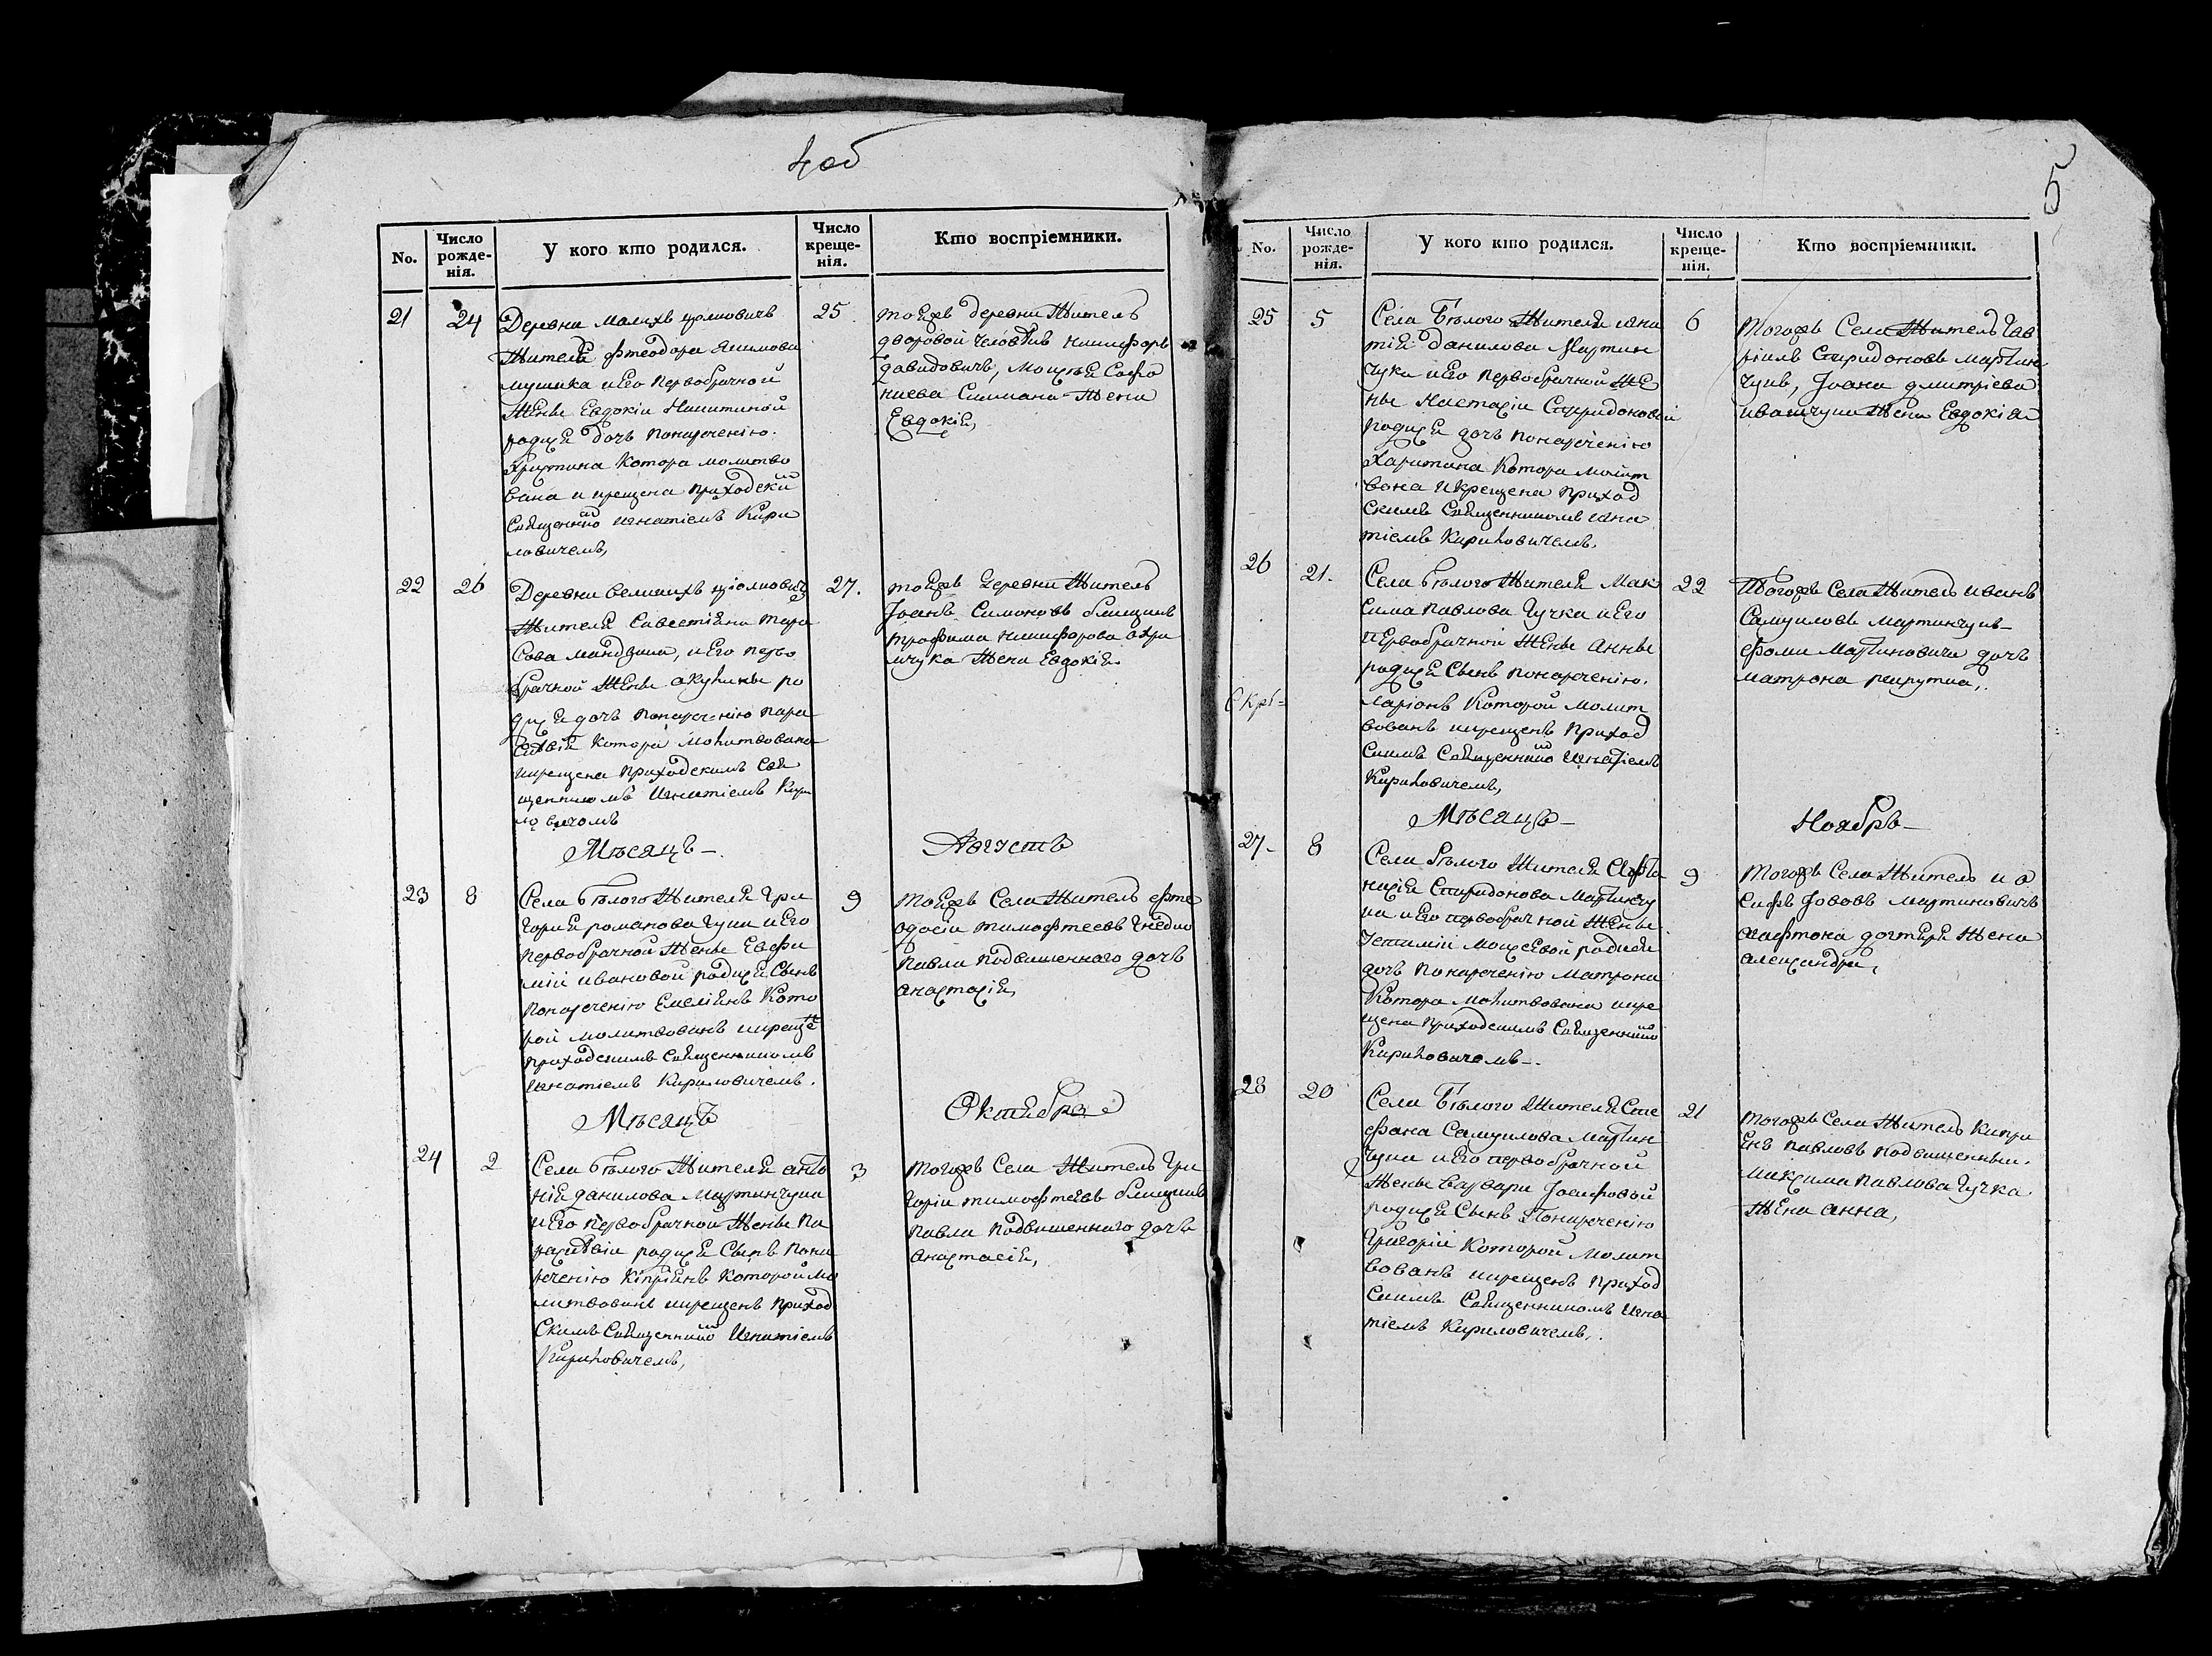 4 об
No.
Число рожде-нія.
У кого кто родился.
Число креще-нія.
Кто воспріемники.
21
24
Деревни Малихъ цолковичъ
Жителя Фтеодора Якимова
мушика и Его Первобрачной
Женъ Евдокіи Никитиной
родися дочь по наречению
Христина котора молитво
вана и крещена приходски
Священнико Игнатіемъ Кири
ловичемъ,
25
тоиже деревни Житель
дворовой человѣкъ Никифоръ
Давидовичъ, Моисея Софо
ниева Жена
Евдокія,
22
26
Деревни великихъ
Жителя Савестіяна Тара
сова и Его перво
брачной Женъ Акулины ро
дися дочь по наречению Пара
скевія котора молитвована
икрещена приходскимъ Свя
щенникомъ Игнатіемъ Кири
ловичомъ
27.
тоиже деревни Житель
Іоанъ Симоновъ блищикъ
Трофима Никифорова Охри
мчука Жена Евдокія
Мѣсяцъ
Августъ
23
8
Села Бѣлого Жителя Гри
горія Романова Гуца и Его
первобрачной Женъ Евфи
мій Ивановой родися Сынъ
по наречению Емеліянъ кото
рой молитвованъ икреще
приходскимъ Священникомъ
Игнатіемъ Кириловичемъ.
9
тоиже Села Житель Фте
одосій Тимофтеевъ Гнедко
Павла Подвишенного дочь
Анастасія,
Мѣсяцъ
Октября
24
2
Села Бѣлого Жителя Анто
нія Данилова Мартинчука
и Его первобрачной Женъ Па
раскевіи родися Сынъ пона
речению Кіпріянъ которой мо
литвованъ икрещенъ приход
скимъ Священнико Игнатіемъ
Кириловичемъ,
3
тогоже Села Житель Гри
горій Тимофтеевъ блищикъ
Павла Подвишенного дочь
Анастасія,
5
No.
Число рожде-нія.
У кого кто родился.
Число креще-нія.
Кто воспріемники.
25
5
Села Бѣлого Жителя Игна
тія Данилова Мартин
чука и Его первобрачной Же
нъ Настасіи Спиридоновой
родися дочь по наречению
Харитина котора молит
вона икрещена приход
скимъ Священникомъ Игна
тіемъ Кириловичемъ.
6
тогоже Села Житель Гав
ріилъ Спиридоновъ Мартин
чукъ, Іоана Дмитріева
Ивашчука Жена Евдокія
26
21.
Села Бѣлого Жителя Мак
сима Павлова Гучка и Его
первобрачной Женъ Анны
родися Сынъ по наречению.
Ларіонъ которой молит
вованъ икрещенъ приход
скимъ Священнико Игнатіемъ
Кириловичемъ,
22
тогоже Села Житель Иванъ
Самуиловъ Мартинчукъ
Фоми Мартиновича дочь
Матрона рекрутка,.
Мѣсяцъ
Ноябрь
27.
8
Села Бѣлого Жителя Афа
насія Спиридонова Мартинчу
ка и Его первобрачной Женъ
Моисеевой родися
дочь по наречению Матрона
котора молитвована икре
щена приходскимъ Священнико
Кириловичомъ
9
тогоже Села Житель ио
сифъ Іововъ Мартиновичъ
Жена
Александра,
28
20
Села Бѣлого Жителя Сте
фана Самуилова Мартин
чука и Его первобрачной
Жены Варвари Іосифовой
родися Сынъ по наречению
Григорій которой молит
вованъ икрещенъ приход
скимъ Священникомъ Игна
тіемъ Кириловичемъ,.
21
тогоже Села Житель Кипри
янъ Павловъ Подвишенный.
Максима Павлова Гучка
Жена Анна,